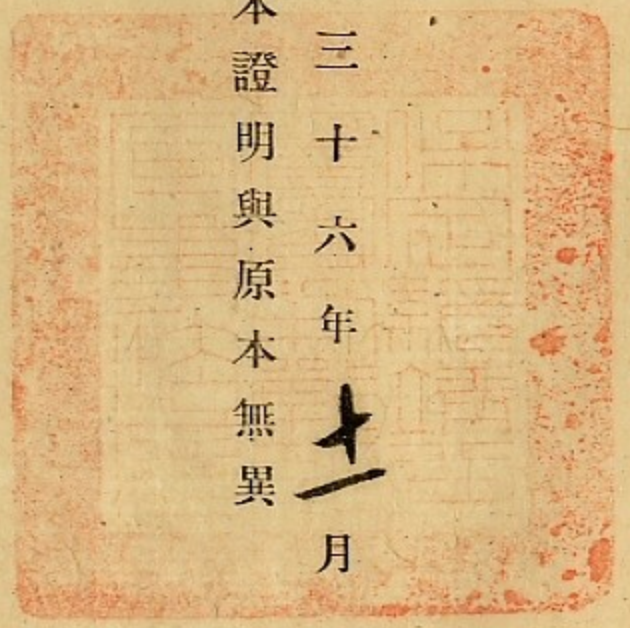 三十六年十一月
本證明與原本無異